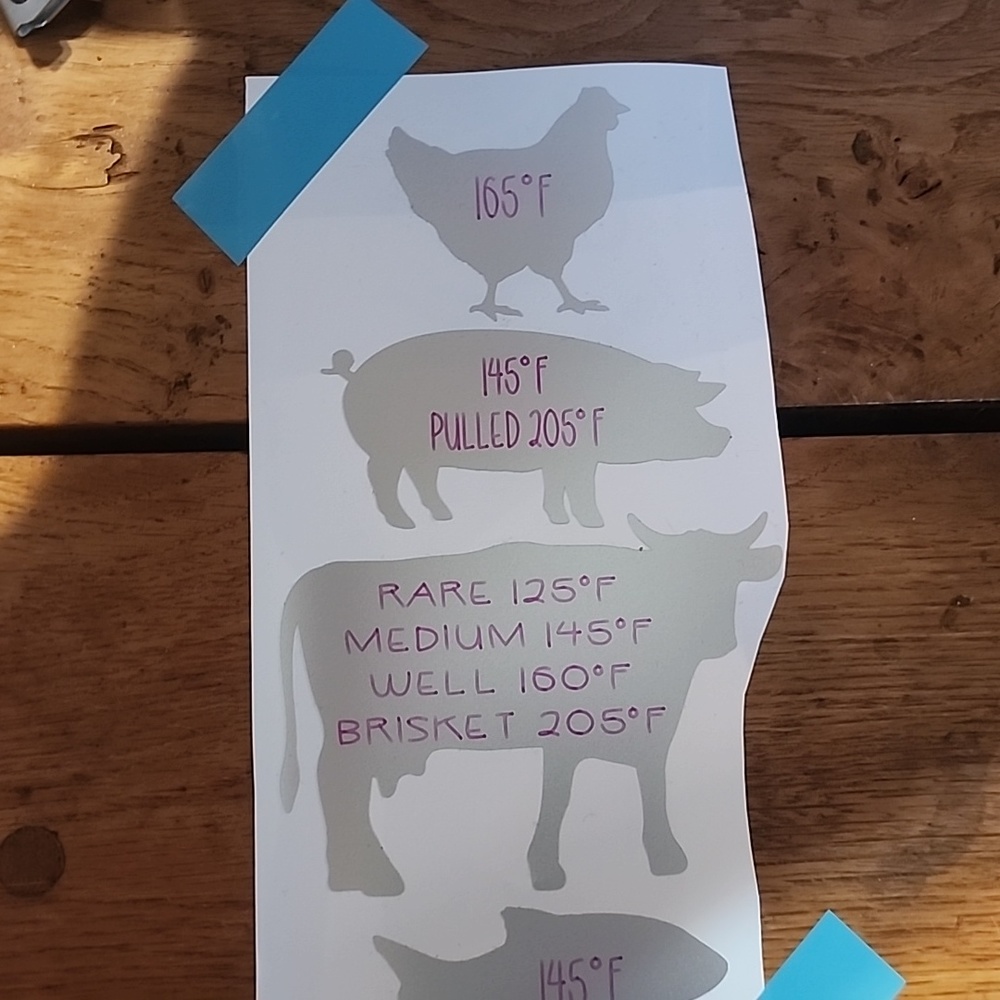 165°F
145°F
PULLED 205°F
RARE 125°F
MEDIUM 145°F
WELL 160°F
BRISKET 205°F
145°F